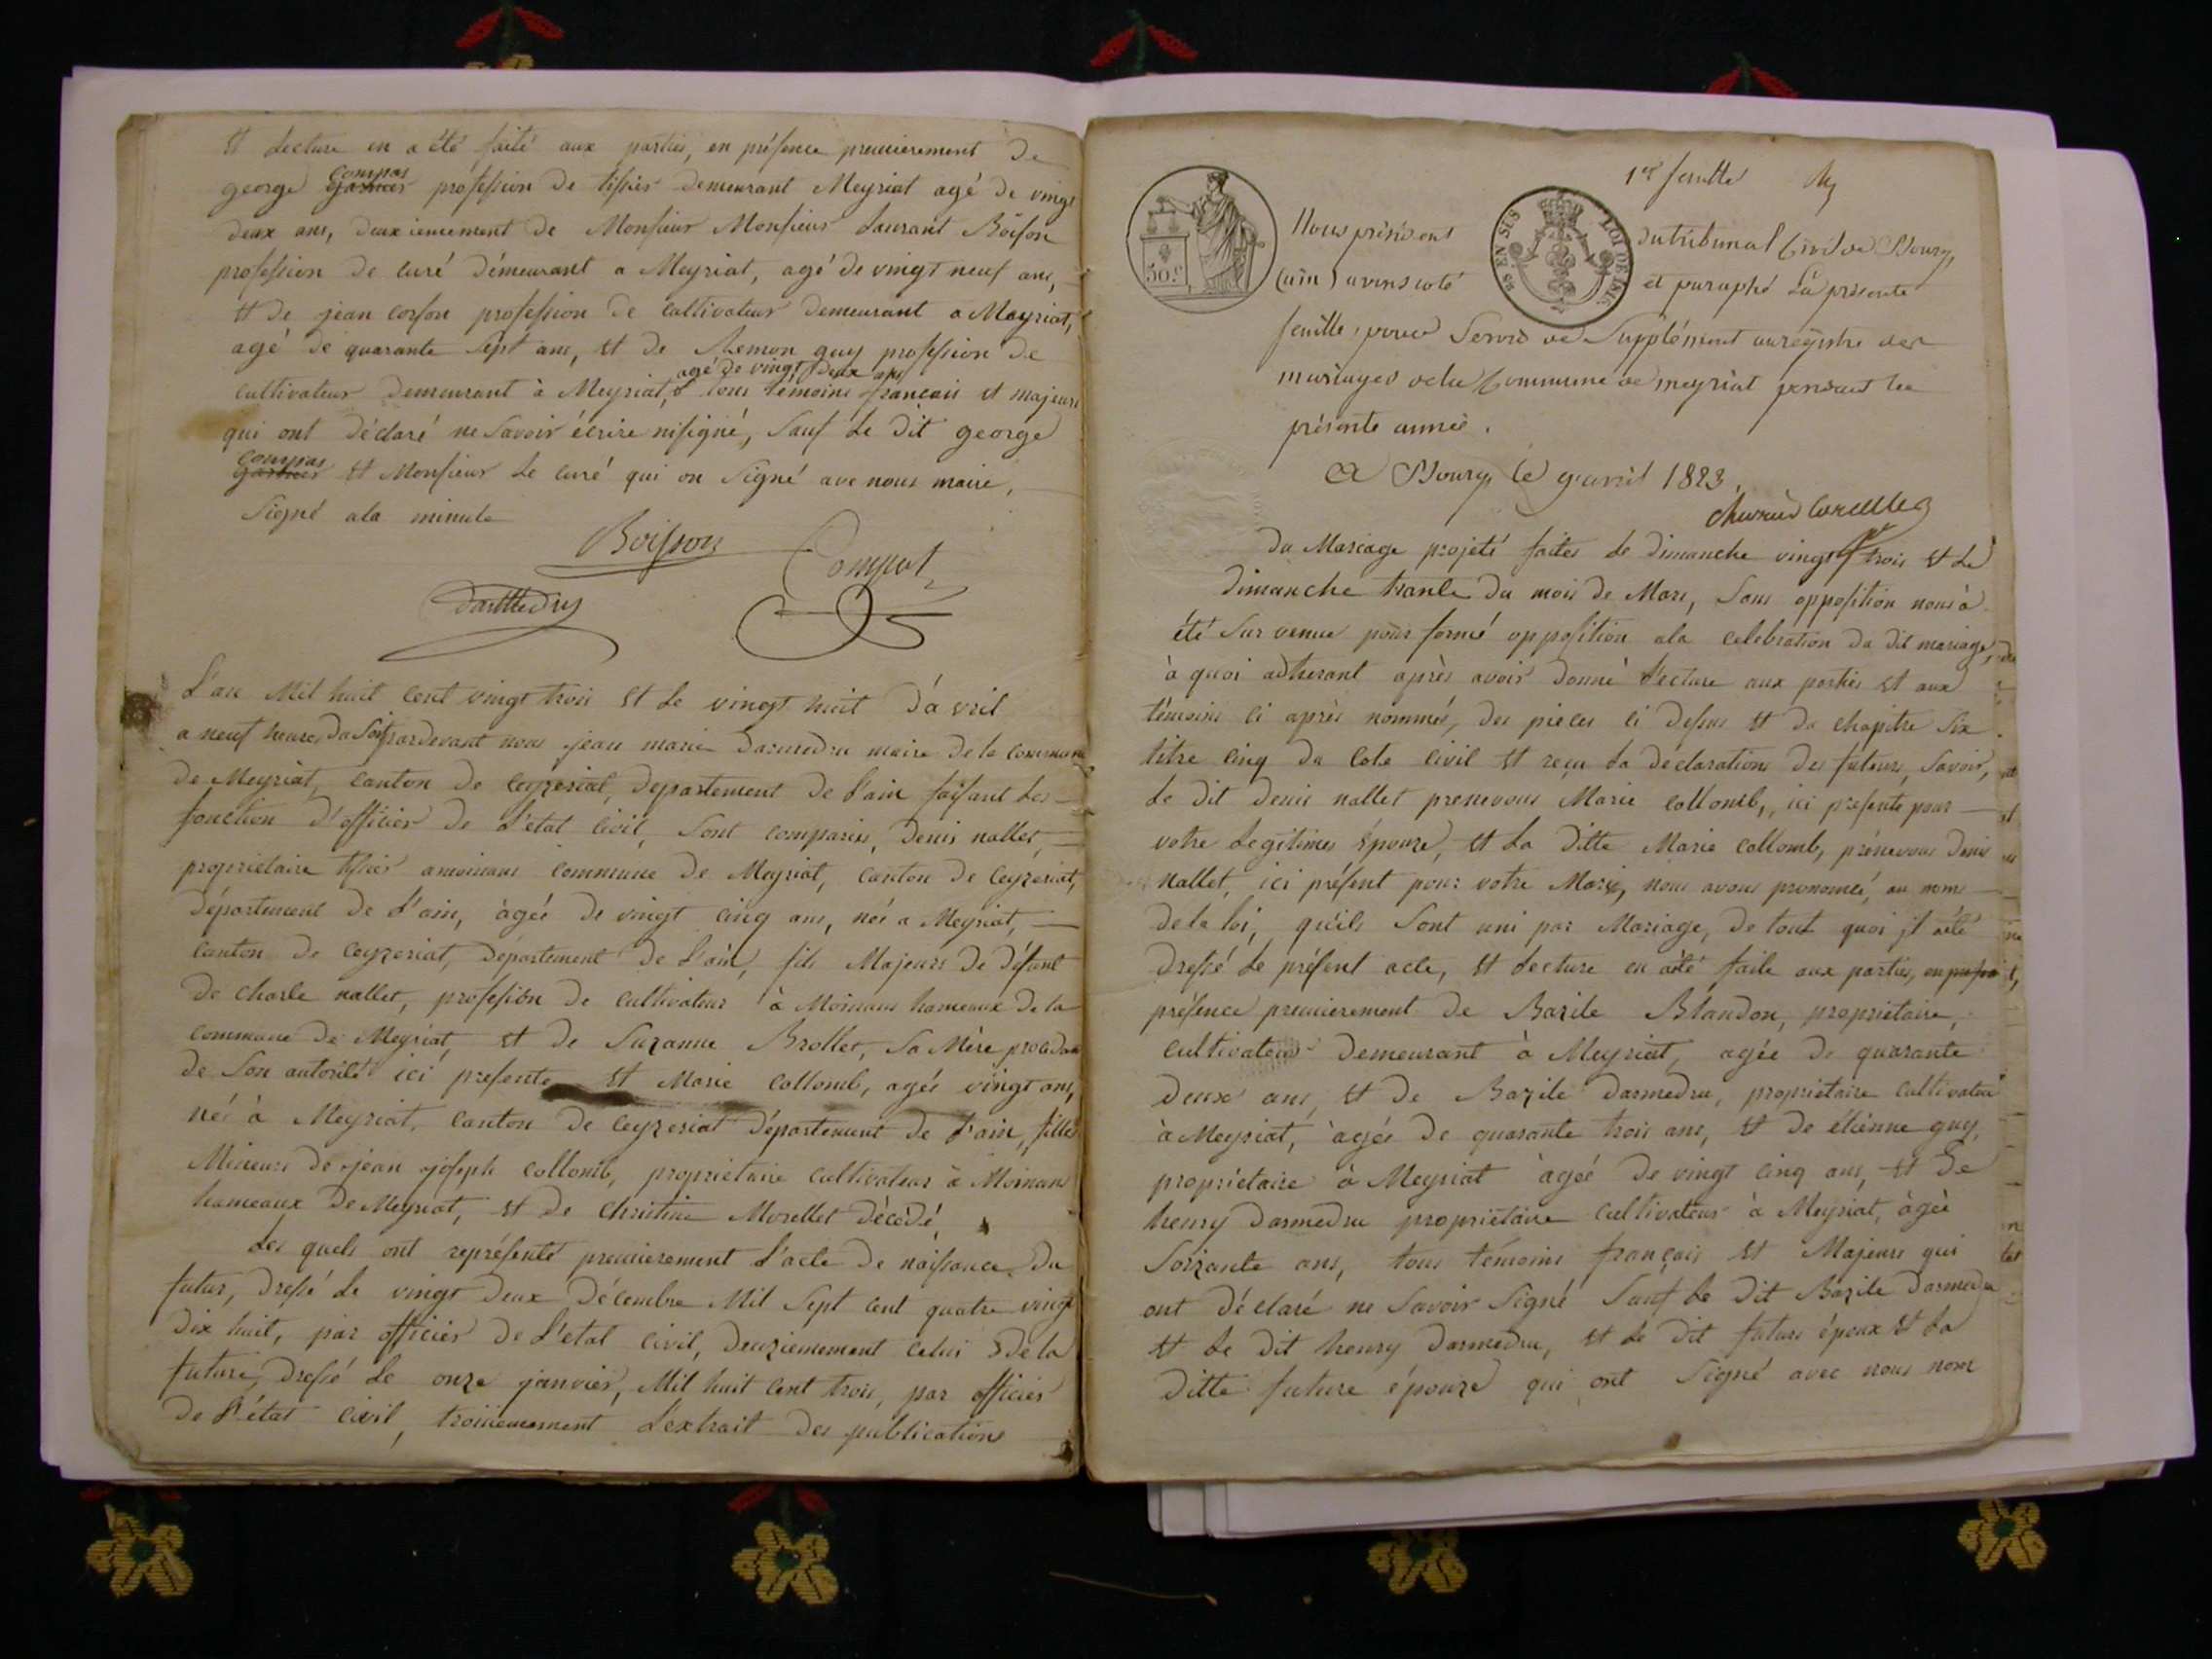 et Lecture en a été faite aux parties, en présence premierement de
george Compas profession de tissier demeurant Meyriat agé de vingt
deux ans, deuxiemement de Monsieur Monsieur Laurant Boison
profession de curé démeurant a Meyriat, agé de vingt neuf ans,
et de jean corson profession de cultivateur demeurant a Meyriat,
agé de quarante sept ans, et de Remon guy profession de
agé de vingt deux ans
cultivateur demeurant à Meyriat, tous témoins francais et majeurs
qui ont déclaré ne savoir écrire ni signé, sauf le dit george
Compas et Monsieur le curé qui on signé ave nous maire,
signé a la minute
Boisson Compat
L'an Mil huit cent vingt trois et le vingt huit d'avril
a neuf heure du soir pardevant nous jean marie darmedru maire de la commune
de Meyriat, canton de ceyzeriat, departement de l'ain faisant les
fonction d'officier de l'etat civil, sont comparus, denis nallet,
propriétaire tissier amoinans commune de Meyriat, canton de ceyzeriat,
département de l'ain, àgée de vingt cinq ans, née a Meyriat,
canton de ceyzeriat, département de l'ain, fils Majeurs de défunt
de charle nallet, profession de cultivateur à Moinans hameaux de la
commune de Meyriat, et de Suzanne Brollet, sa Mère procédant
de son autorité ici presente et Marie collomb, agée vingt ans,
née à Meyriat, canton de ceyzeriat département de l'ain, fille
Mineure de jean joseph collomb, proprietaire cultivateur à Moinan
hameaux de Meyriat, et de christine Morellet décédé,
Les quels ont représenté premierement l'acte de naissance du
futur, dressé le vingt deux décembre Mil sept cent quatre vingt
dix huit, par officier de l'etat civil, deuziemement celui de la
future, dressé le onze janvier, Mil huit cent trois, par officier
de l'état civil, troisiemement l'extrait des publications
1er feuille
Nous président du tribunal civil de Bourg,
(ain) avons coté et paraphé la présente
feuille, pour servir de Supplément au registre des
mariages de la Commune de meyriat pendant la
présente année.
A Bourg, le 9 avril 1823.
50 c.
LOI DE
EN SUS
du Mariage projeté faites le dimanche vingt trois et le
dimanche trante du mois de Mars, sans opposition nous à
été survenue pour formé opposition a la celebration du dit mariage,
à quoi adherant après avoir donné lecture aux parties et aux
témoins ci après nommés, des pieces ci dessus et du chapitre six
titre cinq du code civil et reçu la déclarations des futurs, savoir,
le dit denis nallet prenevous Marie collomb, ici presente pour
votre legitimes épouze, et la ditte Marie collomb, prénevous denis
nallet, ici présent pour votre Marie, nous avons prononcé, au nom
de la loi, qu'ils sont uni par Mariage, de tout quoi jl aété
dressé le présent acte, et lecture en aété faite aux parties, en
présence premierement de Bazile Blandon, proprietaire,
cultivateur demeurant à Meyriat, agée de quarante
deux ans, et de Bazile darmedru, propriétaire cultivateur
à Meyriat, àgée de quarante trois ans, et de étienne guy,
propriétaire à Meyriat àgée de vingt cinq ans, et de
henry darmedru propriétaire cultivateur à Meyriat, àgée
soizante ans, tous témoins français et Majeurs qui
ont déclaré ne savoir signé sauf le dit Bazile darmedru
et le dit henry darmedru, et le dit futur époux et la
ditte future épouze qui ont signé avec nous nom